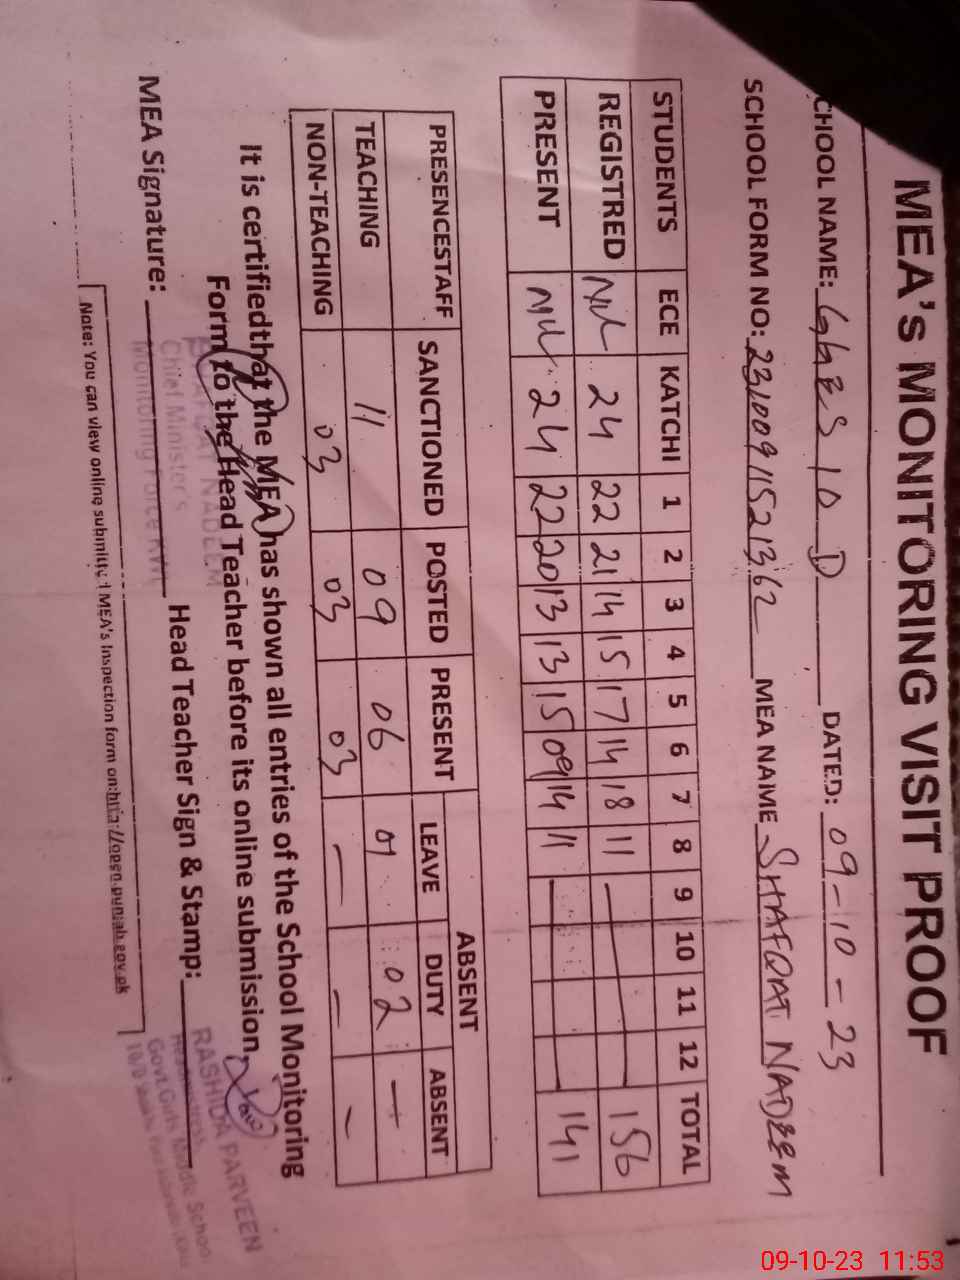 MEA's MONITORING VISIT PROOF
CHOOL NAME: GGES 10 D DATED: 09-10-23
SCHOOL FORM NO: 23100911521362 MEA NAME SHAFQAT NADEEM
STUDENTS ECE KATCHI 1 2 3 4 5 6 7 8 9 10 11 12 TOTAL
REGISTRED Nil 24 22 21 14 15 17 14 18 11 — 156
PRESENT Nil 24 22 20 13 13 15 09 14 11 — 141
PRESENCESTAFF SANCTIONED POSTED PRESENT ABSENT
LEAVE DUTY ABSENT
TEACHING 11 09 06 01 02 —
NON-TEACHING 03 03 03 — — —
It is certifiedthat the MEA has shown all entries of the School Monitoring
Form to the Head Teacher before its online submission.
SHAFQAT NADEEM
Chief Minister's
Monitoring Force KWL
MEA Signature: Head Teacher Sign & Stamp:
RASHIDA PARVEEN
Headmistress
Govt. Girls Middle School
10/D
Note: You can view online submitted MEA's Inspection form on:http://open.punjab.gov.pk
09-10-23 11:53